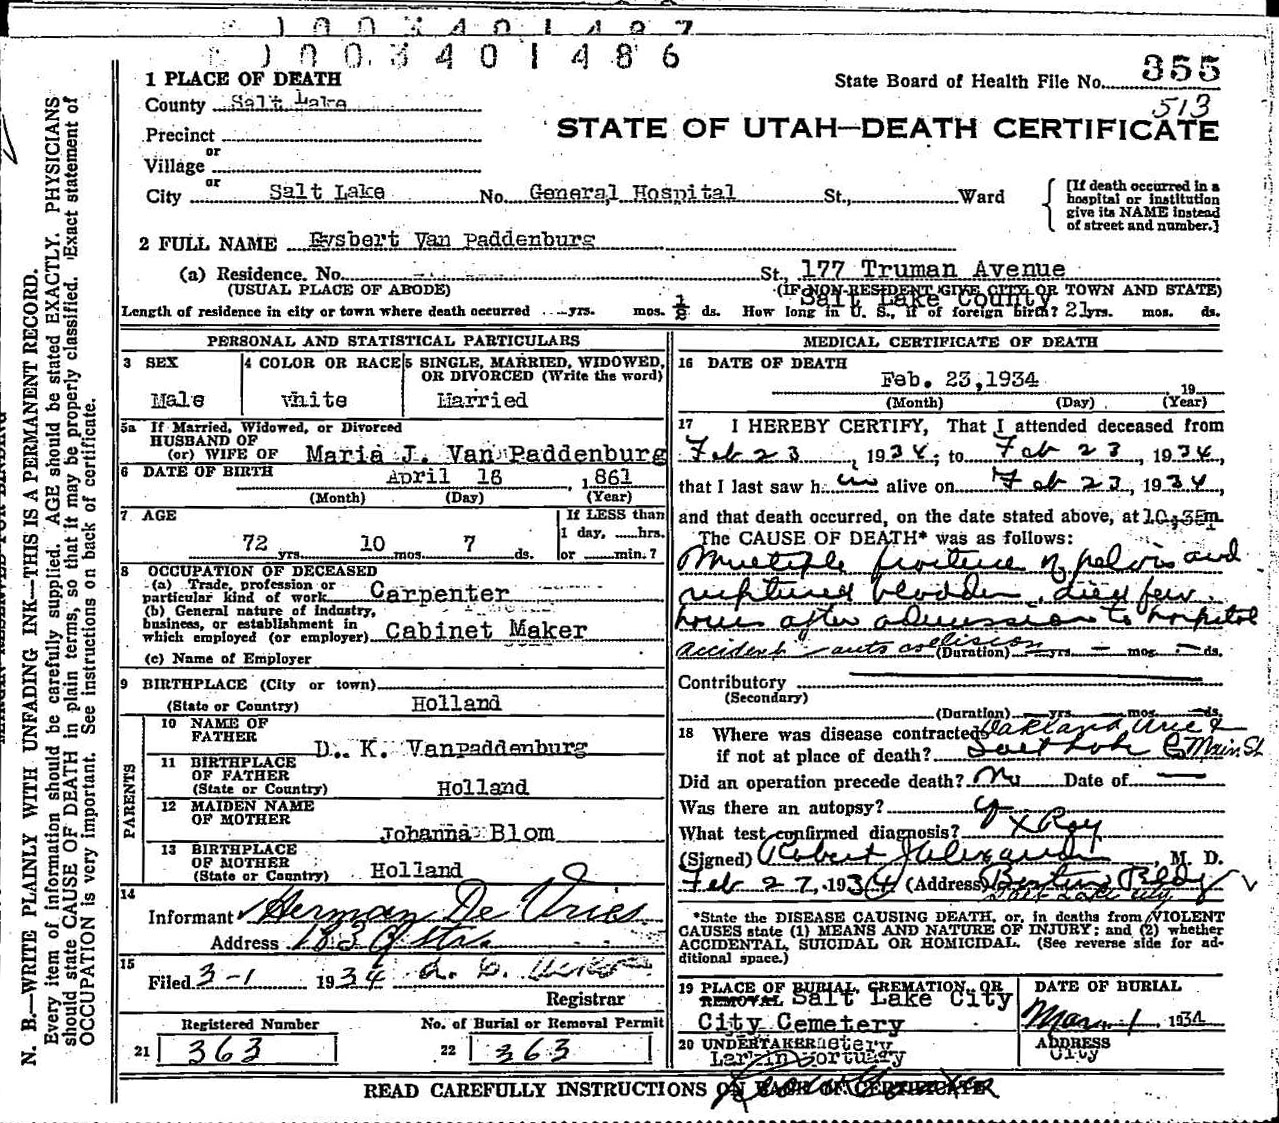 1003401486
1 PLACE OF DEATH
State Board of Health File No. 355
County Salt Lake
513
Precinct
STATE OF UTAH—DEATH CERTIFICATE
or
Village
or
City Salt Lake No. General Hospital St., Ward
[If death occurred in a hospital or institution give its NAME instead of street and number.]
2 FULL NAME Eysbert Van Paddenburg
(a) Residence. No. St., 177 Truman Avenue
(USUAL PLACE OF ABODE) (IF NON-RESIDENT GIVE CITY OR TOWN AND STATE)
Salt Lake County
Length of residence in city or town where death occurred yrs. mos. ds. How long in U. S., if of foreign birth? 21 yrs. mos. ds.
PERSONAL AND STATISTICAL PARTICULARS
3 SEX 4 COLOR OR RACE 5 SINGLE, MARRIED, WIDOWED, OR DIVORCED (Write the word)
Male White Married
5a If Married, Widowed, or Divorced
HUSBAND OF
(or) WIFE OF Maria J. Van Paddenburg
6 DATE OF BIRTH April 16, 1861
(Month) (Day) (Year)
7 AGE If LESS than
1 day, hrs.
72 yrs. 10 mos. 7 ds. or min.?
8 OCCUPATION OF DECEASED
(a) Trade, profession or
particular kind of work Carpenter
(b) General nature of industry,
business, or establishment in
which employed (or employer) Cabinet Maker
(c) Name of Employer
9 BIRTHPLACE (City or town)
(State or Country) Holland
PARENTS
10 NAME OF
FATHER D. K. Vanpaddenburg
11 BIRTHPLACE
OF FATHER
(State or Country) Holland
12 MAIDEN NAME
OF MOTHER Johanna Blom
13 BIRTHPLACE
OF MOTHER
(State or Country) Holland
14
Informant Herman De Vries
Address
15
Filed 3-1 1934
Registrar
Registered Number No. of Burial or Removal Permit
21 363 22 363
MEDICAL CERTIFICATE OF DEATH
16 DATE OF DEATH
Feb. 23, 1934 19
(Month) (Day) (Year)
17 I HEREBY CERTIFY, That I attended deceased from
Feb 23, 1934, to Feb 23, 1934,
that I last saw him alive on Feb 23, 1934,
and that death occurred, on the date stated above, at 10:35
The CAUSE OF DEATH* was as follows:
Multiple fracture of pelvis and
ruptured bladder, died few
hours after admission to hospital
accident - auto collision (Duration) yrs. mos. ds.
Contributory
(Secondary)
(Duration) yrs. mos. ds.
18 Where was disease contracted Oakland Ave &
if not at place of death? Salt Lake C Main St
Did an operation precede death? No Date of
Was there an autopsy?
What test confirmed diagnosis? X Ray
(Signed) Robert J Alexander, M. D.
Feb 27, 1934 (Address)
Salt Lake City
*State the DISEASE CAUSING DEATH, or, in deaths from VIOLENT
CAUSES state (1) MEANS AND NATURE OF INJURY; and (2) whether
ACCIDENTAL, SUICIDAL OR HOMICIDAL. (See reverse side for ad-
ditional space.)
19 PLACE OF BURIAL, CREMATION, OR DATE OF BURIAL
REMOVAL Salt Lake City
City Cemetery Mar. 1, 1934
20 UNDERTAKER ADDRESS
Larkin Mortuary City
READ CAREFULLY INSTRUCTIONS ON BACK OF CERTIFICATE
N. B.—WRITE PLAINLY WITH UNFADING INK—THIS IS A PERMANENT RECORD.
Every item of information should be carefully supplied. AGE should be stated EXACTLY. PHYSICIANS
should state CAUSE OF DEATH in plain terms, so that it may be properly classified. Exact statement of
OCCUPATION is very important. See instructions on back of certificate.